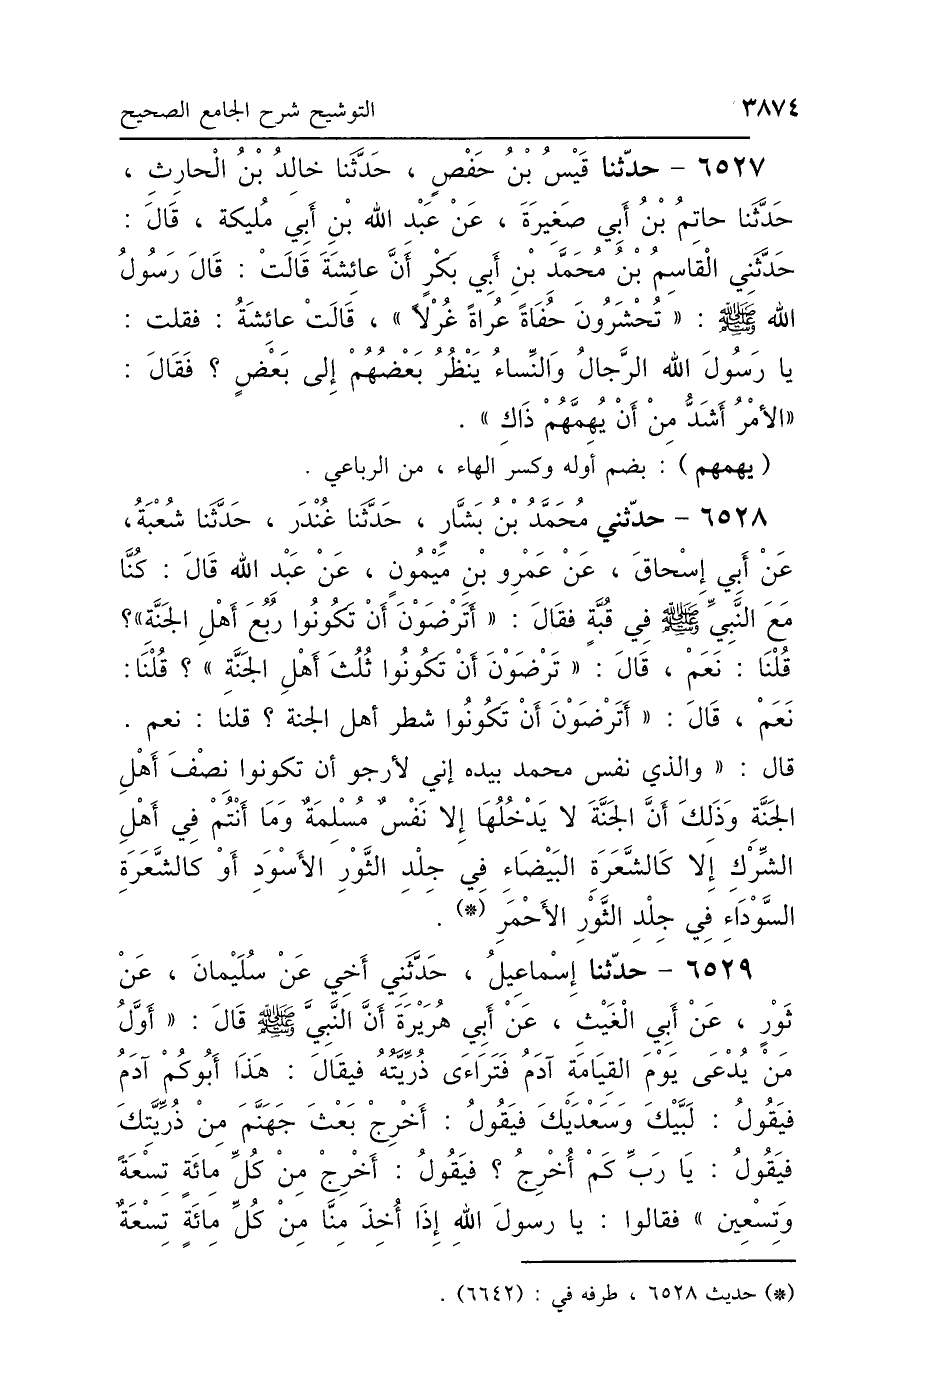 ٣٨٧٤ التوشيح شرح الجامع الصحيح
٦٥٢٧ - حدّثنا قَيْسُ بْنُ حَفْصٍ ، حَدَّثَنا خالدُ بْنُ الْحارِثِ ،
حَدَّثَنا حاتِمُ بْنُ أَبِي صَغِيرَةَ ، عَنْ عَبْدِ الله بْنِ أَبي مُليكة ، قَالَ :
حَدَّثَنِي الْقاسِمُ بْنُ مُحَمَّدِ بْنِ أَبي بَكْرٍ أَنَّ عائِشَةَ قَالَتْ : قَالَ رَسُولُ
الله ﷺ : « تُحْشَرُونَ حُفَاةً عُراةً غُرْلاً » ، قَالَتْ عائِشَةُ : فقلت :
يا رَسُولَ الله الرِّجالُ وَالنِّساءُ يَنْظُرُ بَعْضُهُمْ إلى بَعْضٍ ؟ فَقَالَ :
«الأمْرُ أَشَدُّ مِنْ أَنْ يُهِمَّهُمْ ذَاكِ » .
( يهمهم ) : بضم أوله وكسر الهاء ، من الرباعي .
٦٥٢٨ - حدّثني مُحَمَّدُ بْنُ بَشَّارٍ ، حَدَّثَنا غُنْدَر ، حَدَّثَنا شُعْبَةُ،
عَنْ أَبي إِسْحاقَ ، عَنْ عَمْرِو بْنِ مَيْمُونٍ ، عَن عَبْدِ الله قَالَ : كُنَّا
مَعَ النَّبِيِّ ﷺ فِي قُبَّةٍ فقَالَ : « أَتَرْضَوْنَ أَنْ تَكُونُوا رُبُعَ أَهْلِ الجَنَّةِ»؟
قُلْنَا : نَعَمْ ، قَالَ : « تَرْضَوْنَ أَنْ تَكُونُوا ثُلُثَ أَهْلِ الجَنَّةِ » ؟ قُلْنَا:
نَعَمْ ، قَالَ : « أَتَرْضَوْنَ أَنْ تَكُونُوا شطر أهل الجنة ؟ قلنا : نعم .
قال : « والذي نفس محمد بيده إني لأرجو أن تكونوا نِصْفَ أَهْلِ
الجَنَّةِ وَذَلِكَ أَنَّ الجَنَّةَ لا يَدْخُلُهَا إلا نَفْسٌ مُسْلِمَةٌ وَمَا أَنْتُمْ فِي أَهْلِ
الشِّرْكِ إلا كَالشَّعَرَةِ البَيْضَاءِ فِي جِلْدِ الثَّوْرِ الأَسْوَدِ أَوْ كالشَّعَرَةِ
السَّوْدَاءِ فِي جِلْدِ الثَّوْرِ الأَحْمَرِ (*) .
٦٥٢٩ - حدّثنا إِسْماعِيلُ ، حَدَّثَنِي أَخِي عَنْ سُلَيْمانَ ، عَنْ
ثَوْرٍ ، عَنْ أَبي الْغَيْثِ ، عَنْ أَبي هُرَيْرَةَ أَنَّ النَّبِيَّ ﷺ قَالَ : « أَوَّلُ
مَنْ يُدْعَى يَوْمَ القِيَامَةِ آدَمُ فَتَرَاءَى ذُرِّيَّتُهُ فيقَالَ : هَذَا أَبُوكُمْ آدَمُ
فيَقُولُ : لَبَّيْكَ وَسَعْدَيْكَ فَيَقُولُ : أَخْرِجْ بَعْثَ جَهَنَّمَ مِنْ ذُرِّيَّتِكَ
فيَقُولُ : يَا رَبِّ كَمْ أُخْرِجُ ؟ فيَقُولُ : أَخْرِجْ مِنْ كُلِّ مِائَةٍ تِسْعَةً
وَتِسْعِين » فقالوا : يا رسولَ اللهِ إِذَا أُخِذَ مِنَّا مِنْ كُلِّ مِائَةٍ تِسْعَةٌ
(*) حديث ٦٥٢٨ ، طرفه في : (٦٦٤٢) .